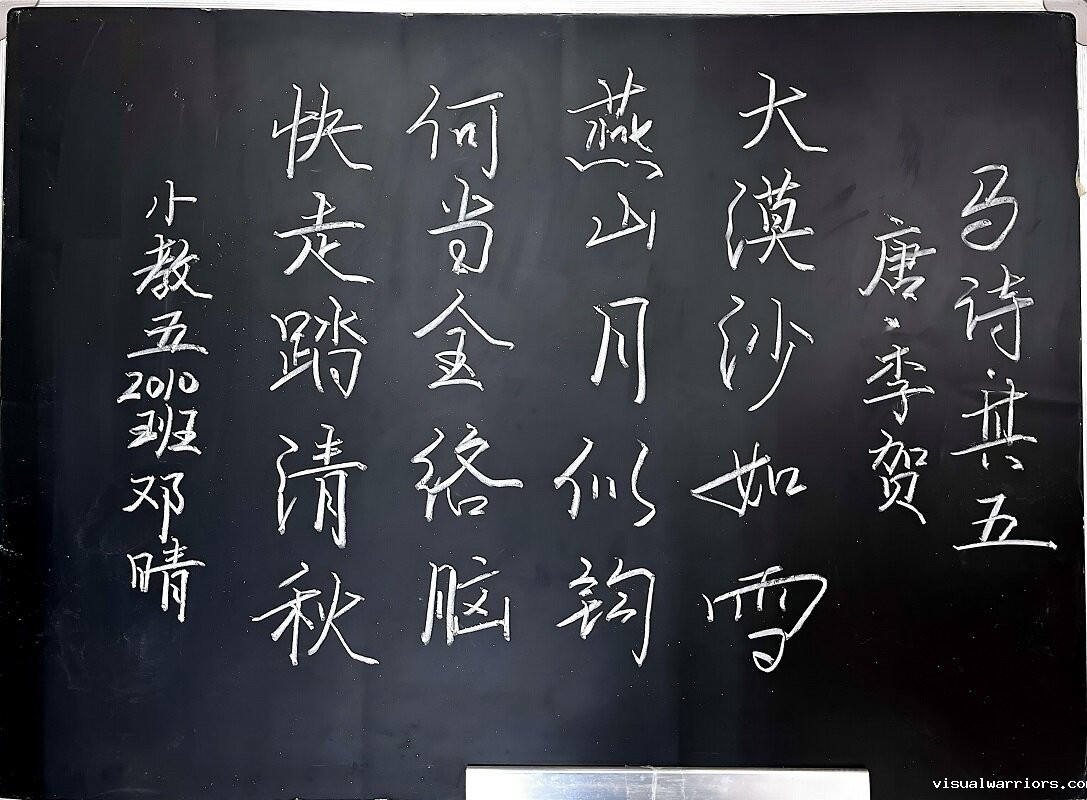 马诗·其五
唐·李贺
大漠沙如雪
燕山月似钩
何当金络脑
快走踏清秋
小教五2010班邓晴
visualwarriors.co